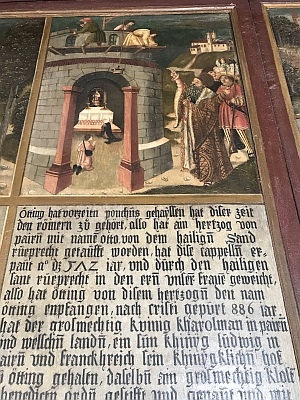 Otting hat vorzeiten pontihus gehayssen hat diser zeit
den römern zu gehört, also hat ain hertzog von
pairn mit name otto, von dem hailign Sand
rueprecht getaufft worden, hat dise cappelln er-
paut JAZ iar, und durch den hailigen
sant rueprecht in den ern unser frauē geweicht,
also hat otting von disem hertzogn den nam
otting enpfangen, nach cristi gepurt 886 iar,
hat der grosmechtig kunig kharolman in pairn
und welschn landn, ein sun khinyg ludwig in
pairn und franckhreich sein khinygklichn hof
zu otting gehaltn, daselbm am grosmechtig klost
benedictn ordn gestifft und